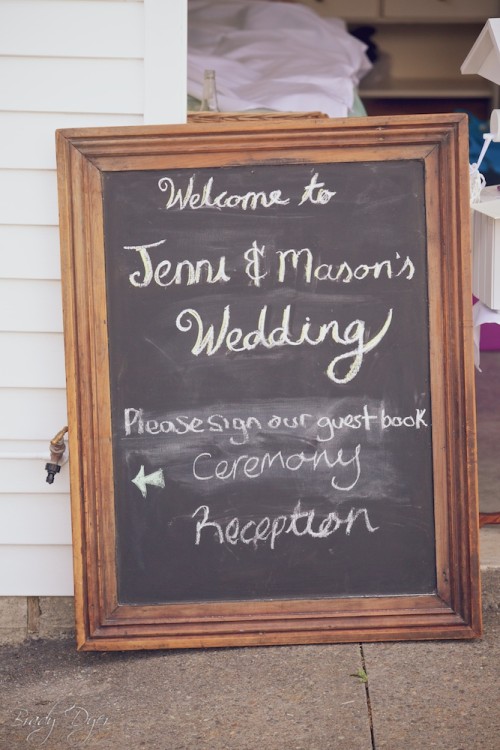 Welcome to
Jenni & Mason's
Wedding
Please sign our guest book
Ceremony
Reception
Brady Dyer